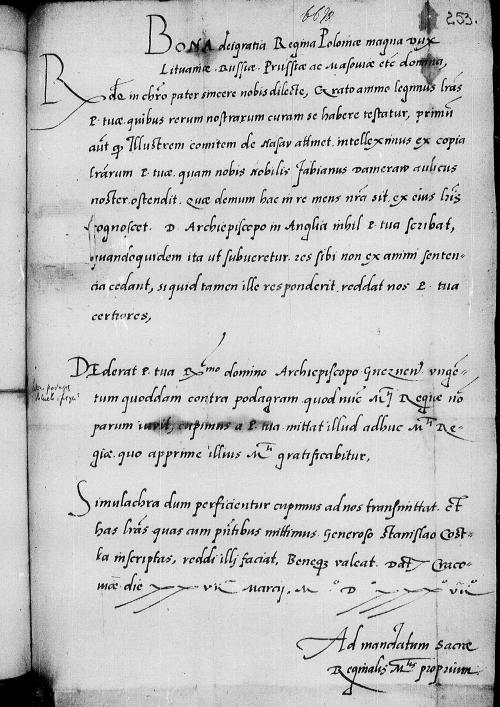 669
253.
BONA dei gratia Regina Poloniæ magna Dux
Lituaniæ. Russiæ. Prussiæ ac Masoviæ etc̄ domina,
Rde in chr̄o pater sincere nobis dilecte, Grato animo legimus lr̄as
P. tuæ, quibus rerum nostrarum curam se habere testatur, primū
aūt qp̄ Illustrem comitem de Nasav attinet. intelleximus ex copia
lr̄arum P. tuæ. quam nobis nobilis fabianus Dameraw aulicus
noster. ostendit. Quæ demum hac in re mens nr̄a sit. ex eius lr̄is
cognoscet. D. Archiepiscopo in Anglia nihil P. tua scribat,
quandoquidem ita ut subveretur. res sibi non ex animi senten-
cia cedant, si quid tamen ille responderit. reddat nos P. tua
certiores,
DEderat P. tua Rmo domino Archiepiscopo Gneznēn. vnge-
tum quoddam contra podagram. quod nūc Mti Regiæ nō
parum iuvit, cupimus a P. tua. mittat illud adhuc Mti Re-
giæ. quo apprime illius Mti gratificabitur,
Simulachra dum perficientur cupimus ad nos transmittat. Et
has lr̄as quas cum pn̄tibus mittimus. Generoso Stanislao Cost-
ka inscriptas, reddi illj faciat, Beneqz valeat. Dat Craco-
viæ die XXVII Marcij, Mo Do XXXo VIIo
Ad mandatum Sacræ
Reginalis Mtis proprium